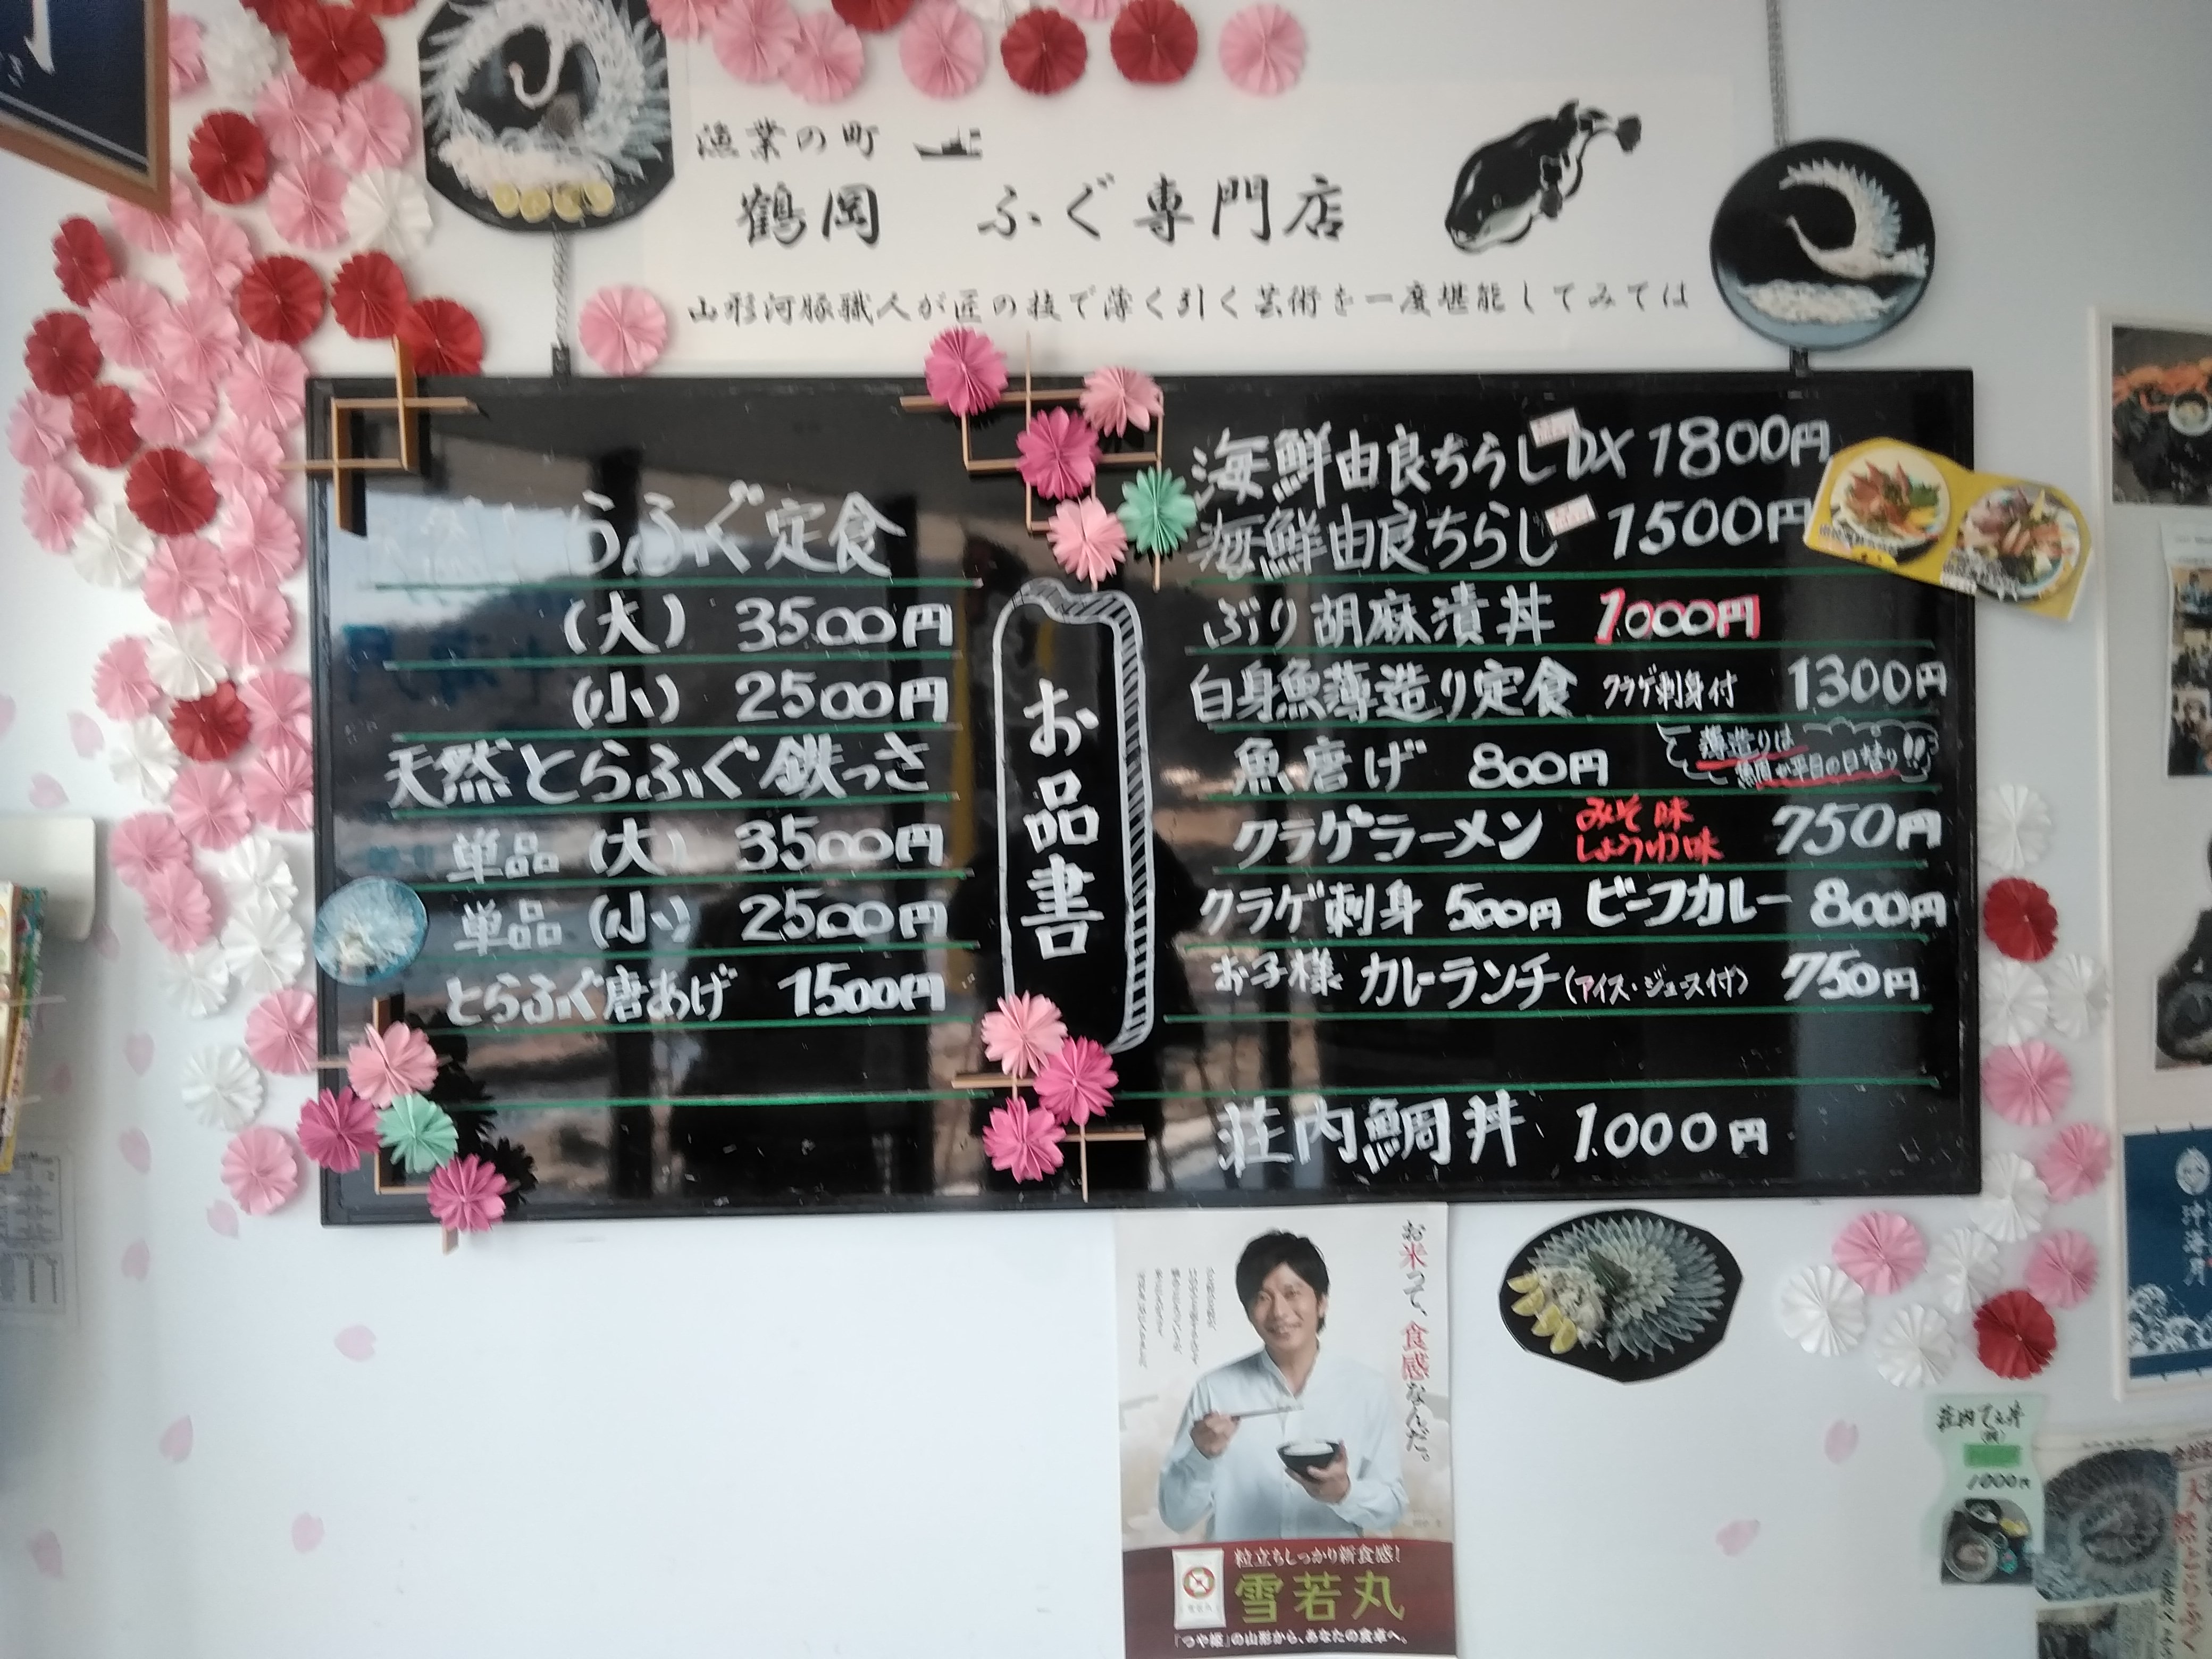 漁業の町
鶴岡 ふぐ専門店
山形河豚職人が匠の技で薄く引く芸術を一度堪能してみては
らふぐ定食
(大) 3500円
(小) 2500円
天然とらふぐ鉄っさ
単品 (大) 3500円
単品 (小) 2500円
とらふぐ唐あげ 1500円
お品書
海鮮由良ちらしDX 1800円
海鮮由良ちらし 1500円
ぶり胡麻漬丼 1000円
白身魚薄造り定食 クラゲ刺身付 1300円
魚唐げ 800円
薄造りは
鯛か平目の日替り!!
クラゲラーメン みそ味 しょうゆ味 750円
クラゲ刺身 500円 ビーフカレー 800円
お子様 カレーランチ(アイス・ジュース付) 750円
荘内鯛丼 1.000円
お米って、食感なんだ。
粒立ちしっかり新食感!
雪若丸
「つや姫」の山形から、あなたの食卓へ。
沖海月
1000円